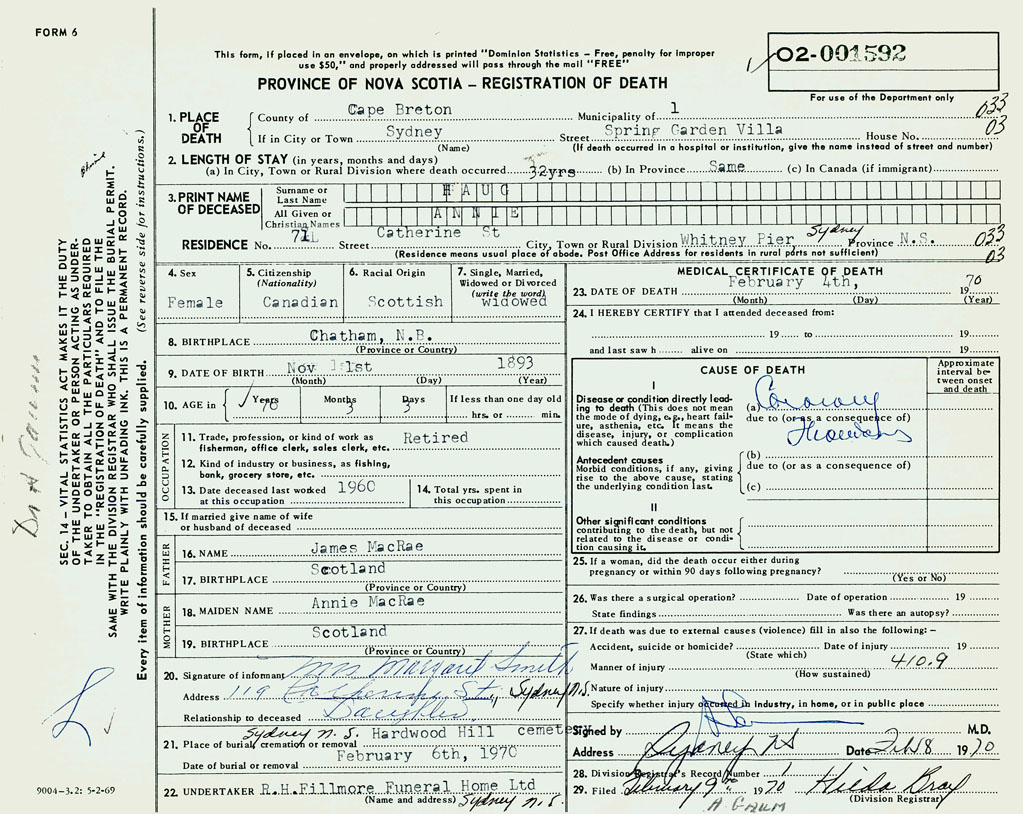 FORM 6
This form, if placed in an envelope, on which is printed "Dominion Statistics – Free, penalty for improper
use $50," and properly addressed will pass through the mail "FREE"
O2-001592
PROVINCE OF NOVA SCOTIA – REGISTRATION OF DEATH
For use of the Department only
1. PLACE OF DEATH
County of Cape Breton Municipality of 1 033
If in City or Town Sydney Street Spring Garden Villa House No. 03
(Name) (If death occurred in a hospital or institution, give the name instead of street and number)
2. LENGTH OF STAY (in years, months and days)
(a) In City, Town or Rural Division where death occurred 32yrs (b) In Province Same (c) In Canada (if immigrant)
3. PRINT NAME OF DECEASED
Surname or Last Name HAUG
All Given or Christian Names ANNIE
RESIDENCE No. 71L Street Catherine St City, Town or Rural Division Whitney Pier, Sydney Province N.S. 033
(Residence means usual place of abode. Post Office Address for residents in rural parts not sufficient) 03
4. Sex
Female
5. Citizenship
(Nationality)
Canadian
6. Racial Origin
Scottish
7. Single, Married,
Widowed or Divorced
(write the word)
widowed
8. BIRTHPLACE Chatham, N.B.
(Province or Country)
9. DATE OF BIRTH Nov 1st 1893
(Month) (Day) (Year)
10. AGE in Years 76 Months 3 Days 3 If less than one day old
hrs. or min.
OCCUPATION
11. Trade, profession, or kind of work as
fisherman, office clerk, sales clerk, etc. Retired
12. Kind of industry or business, as fishing,
bank, grocery store, etc.
13. Date deceased last worked
at this occupation 1960
14. Total yrs. spent in
this occupation
15. If married give name of wife
or husband of deceased
FATHER
16. NAME James MacRae
17. BIRTHPLACE Scotland
(Province or Country)
MOTHER
18. MAIDEN NAME Annie MacRae
19. BIRTHPLACE Scotland
(Province or Country)
20. Signature of informant Mrs Margaret Smith
Address 119 Catherine St., Sydney N.S.
Relationship to deceased Daughter
Sydney N.S. Hardwood Hill cemete
21. Place of burial, cremation or removal
Date of burial or removal February 6th, 1970
22. UNDERTAKER R.H.Fillmore Funeral Home Ltd
(Name and address) Sydney N.S.
MEDICAL CERTIFICATE OF DEATH
23. DATE OF DEATH February 4th, 1970
(Month) (Day) (Year)
24. I HEREBY CERTIFY that I attended deceased from:
19 to 19
and last saw h alive on 19
CAUSE OF DEATH
Approximate
interval be-
tween onset
and death
I
Disease or condition directly lead-
ing to death (This does not mean
the mode of dying, e.g., heart fail-
ure, asthenia, etc. It means the
disease, injury, or complication
which caused death.)
(a) Coronary
due to (or as a consequence of)
Thrombosis
Antecedent causes
Morbid conditions, if any, giving
rise to the above cause, stating
the underlying condition last.
(b)
due to (or as a consequence of)
(c)
II
Other significant conditions
contributing to the death, but not
related to the disease or condi-
tion causing it.
25. If a woman, did the death occur either during
pregnancy or within 90 days following pregnancy?
(Yes or No)
26. Was there a surgical operation? Date of operation 19
State findings Was there an autopsy?
27. If death was due to external causes (violence) fill in also the following: –
Accident, suicide or homicide? Date of injury 19
(State which) 410.9
Manner of injury
(How sustained)
Nature of injury
Specify whether injury occurred in industry, in home, or in public place
Signed by M.D.
Address Sydney NS Date Feb 8 1970
28. Division Registrar's Record Number 1
29. Filed February 9th 1970 Hilda Bray
(Division Registrar)
SEC. 14 – VITAL STATISTICS ACT MAKES IT THE DUTY
OF THE UNDERTAKER OR PERSON ACTING AS UNDER-
TAKER TO OBTAIN ALL THE PARTICULARS REQUIRED
IN THE "REGISTRATION OF DEATH" AND TO FILE THE
SAME WITH THE DIVISION REGISTRAR WHO SHALL ISSUE THE BURIAL PERMIT.
WRITE PLAINLY WITH UNFADING INK. THIS IS A PERMANENT RECORD.
Every item of information should be carefully supplied. (See reverse side for instructions.)
9004–3.2: 5-2-69